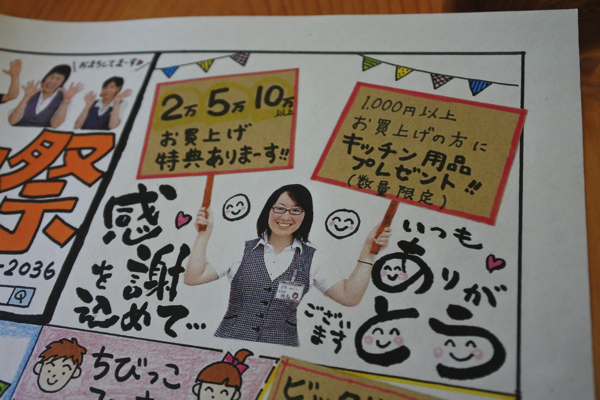 おまちしてまーす
祭
-2036
2万 5万 10万以上
お買上げ
特典ありまーす!!
1,000円以上
お買上げの方に
キッチン用品
プレゼント!!
(数量限定)
感謝
を込めて…
いつも
ありが
とう
ございます
ちびっこ